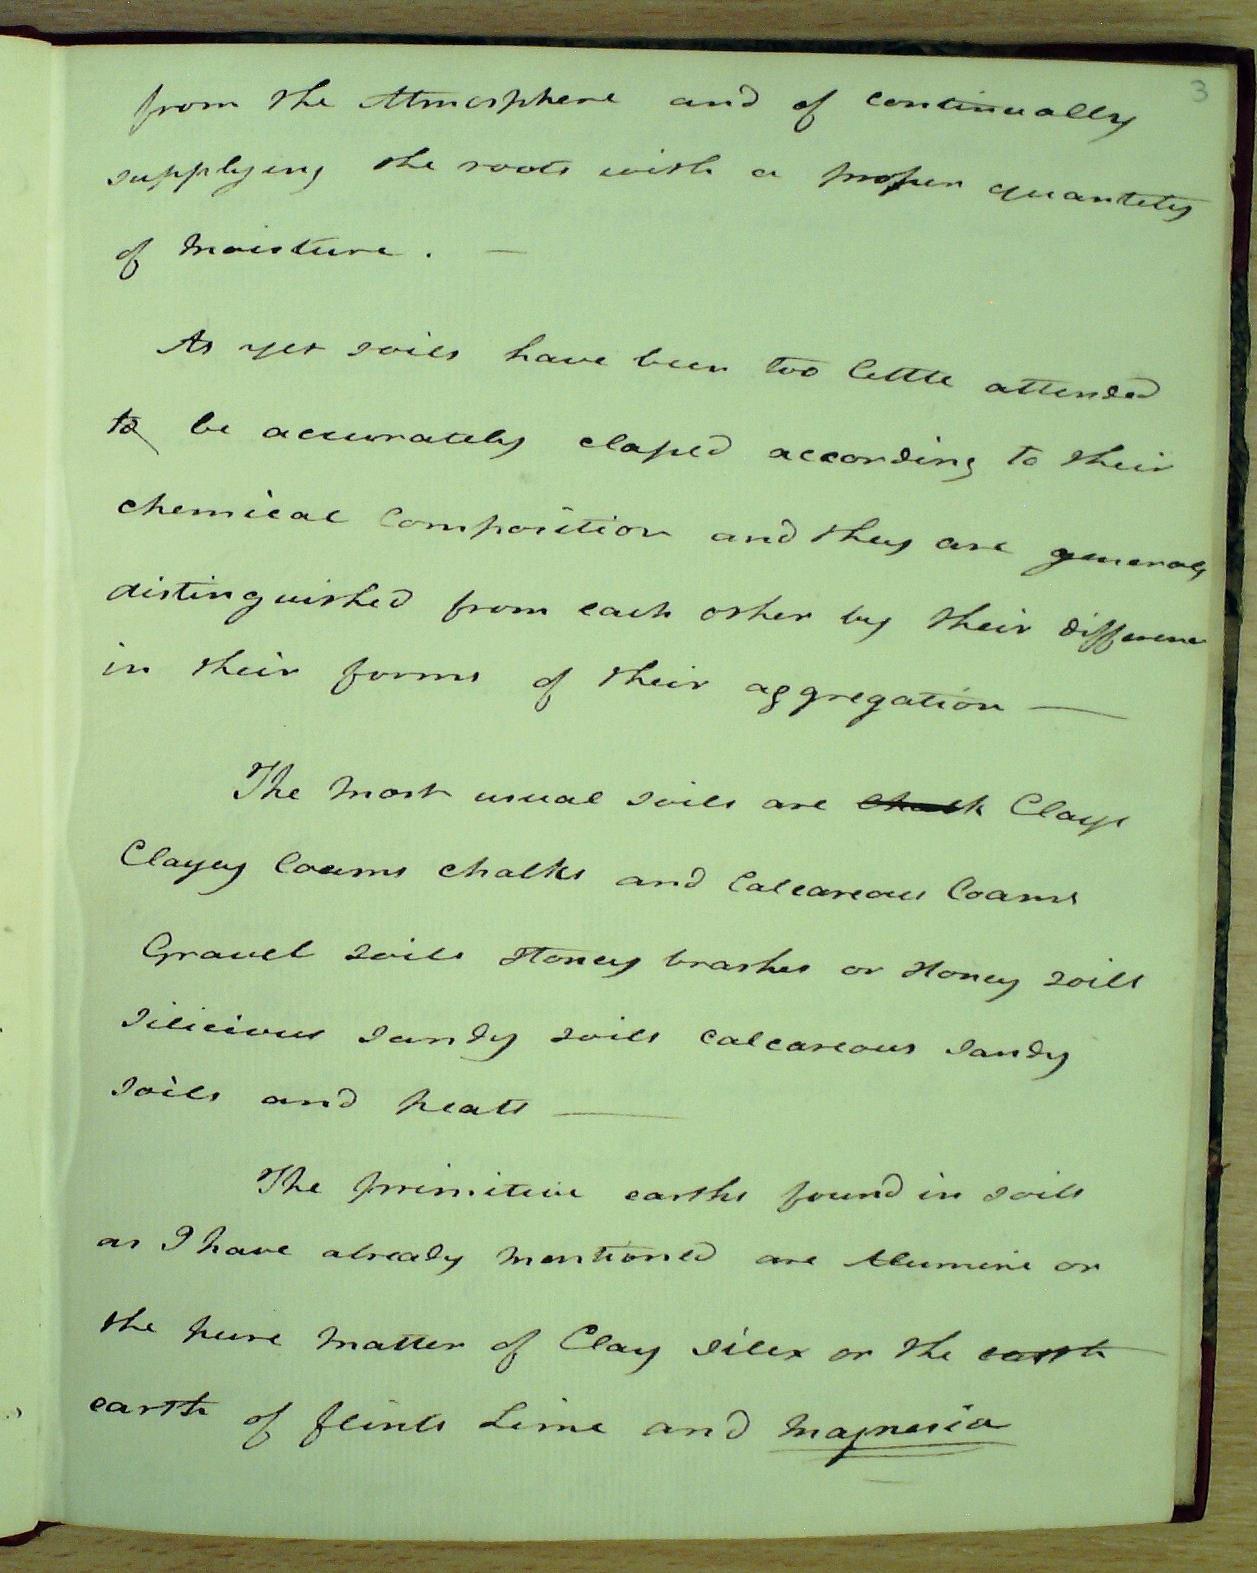 3
from the Atmosphere and of continually
supplying the roots with a proper quantity
of moisture. —
As yet soils have been too little attended
to be accurately classed according to their
chemical composition and they are generally
distinguished from each other by their difference
in their forms of their aggregation —
The most usual soils are chalk Clays
Clayey loams chalks and Calcareous loams
Gravel soils stoney brashes or stoney soils
silicious sandy soils calcareous sandy
soils and peats —
The primitive earths found in soils
as I have already mentioned are Alumine or
the pure matter of Clay silex or the earth
earth of flints Lime and Magnesia